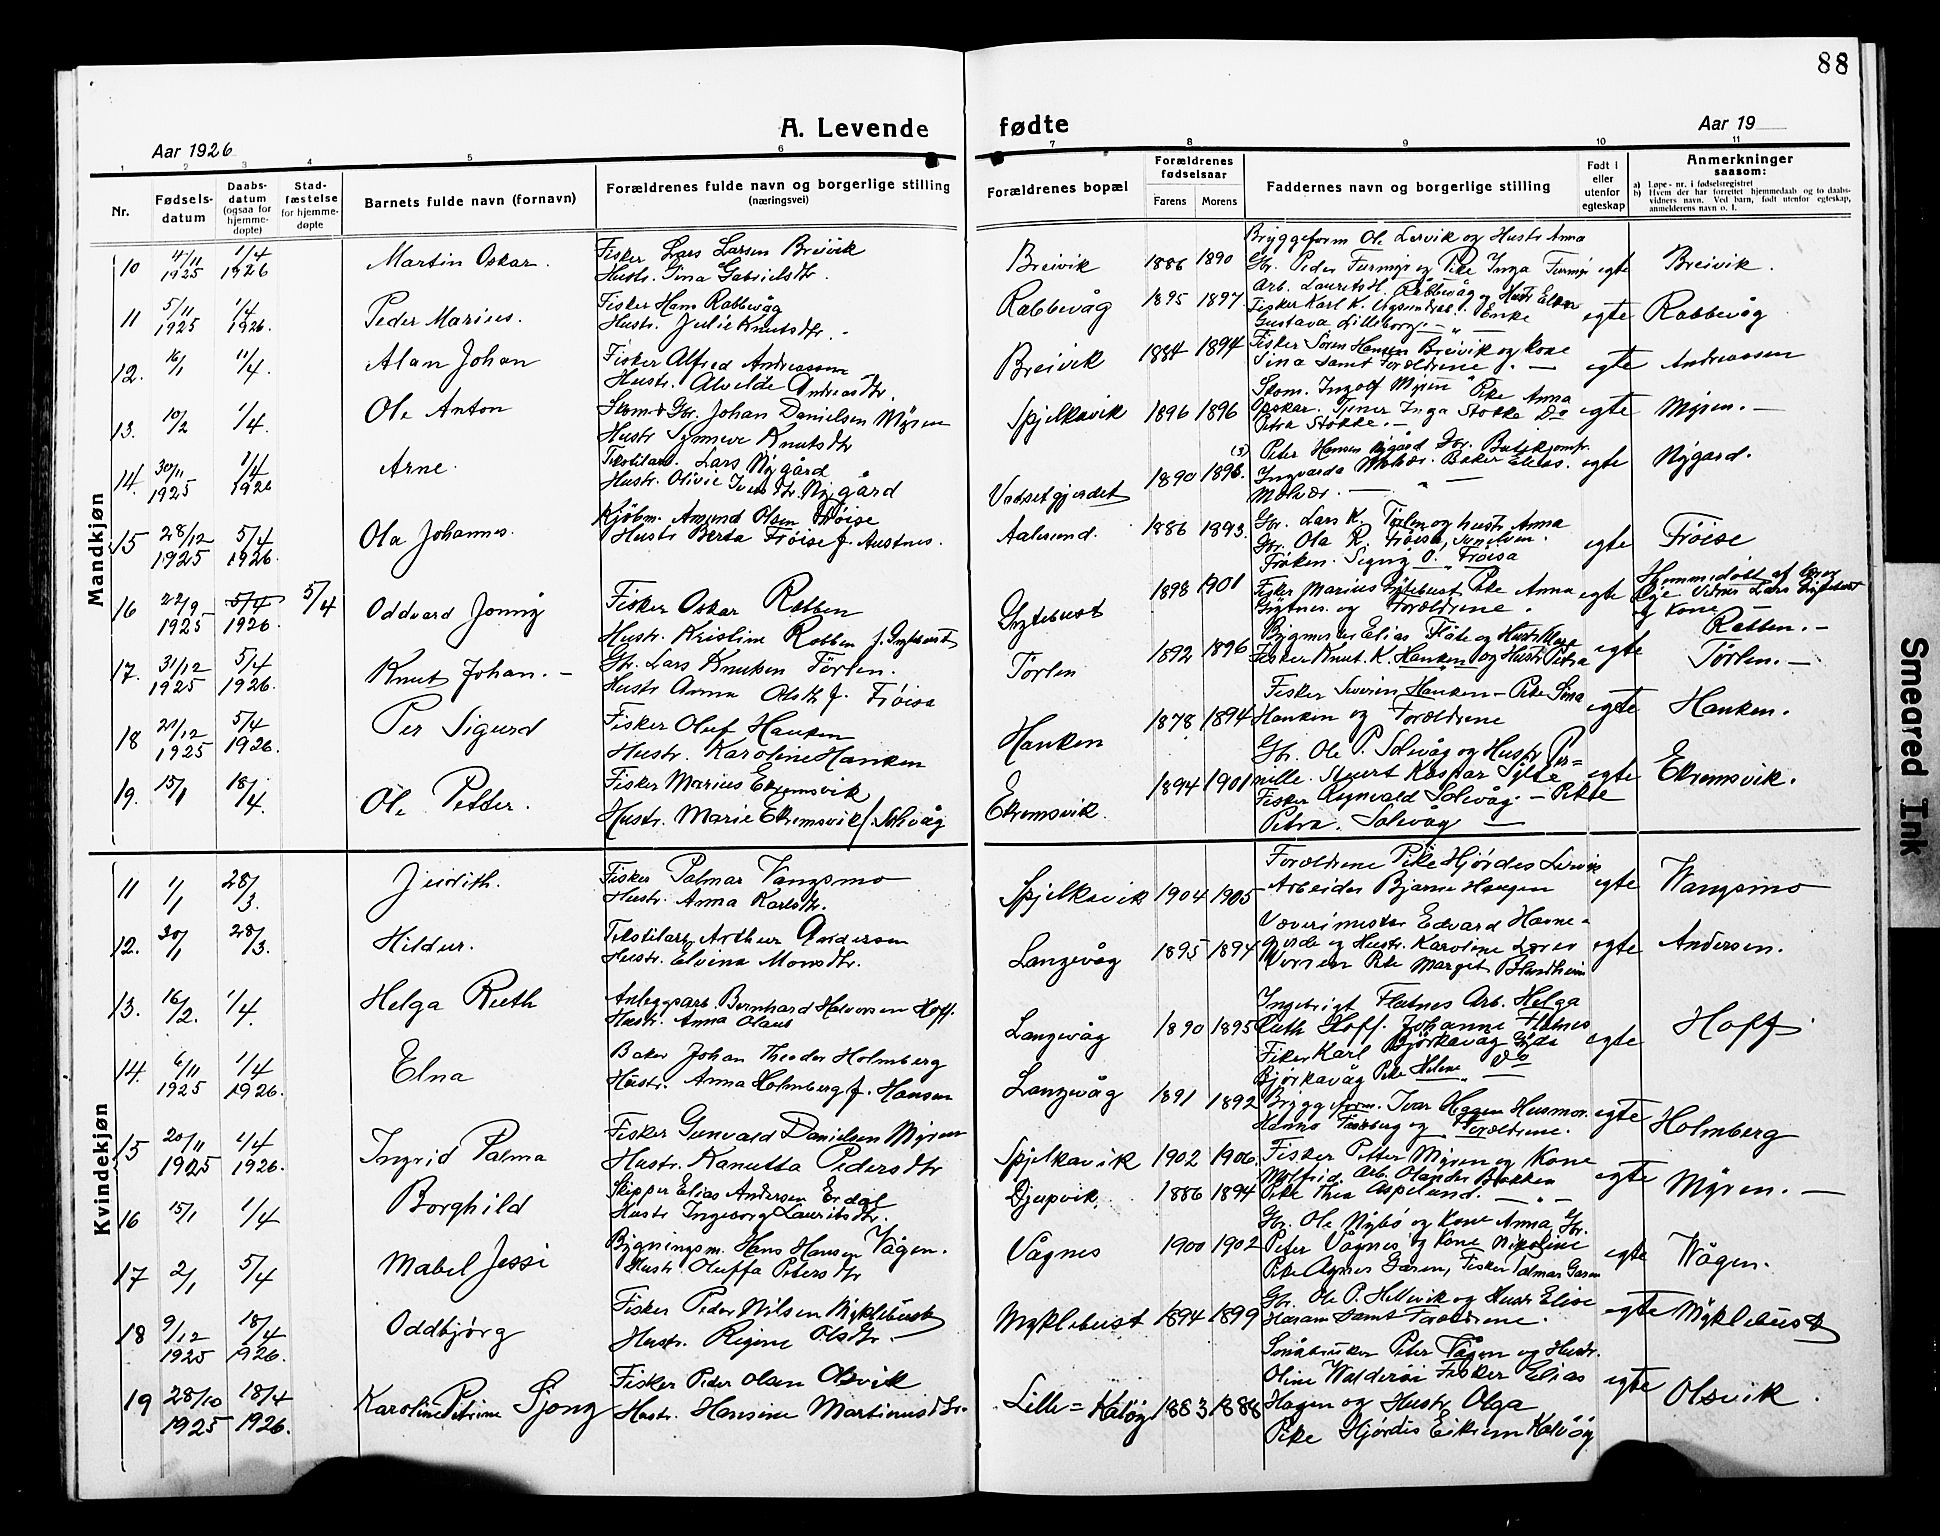 88
A. Levende fødte
Aar 1926
Aar 19
1 2 3 4 5 6 7 8 9 10 11
Nr.
Fødsels-datum
Daabs-datum (ogsaa for hjemme-døpte)
Stad-fæstelse for hjemme-døpte
Barnets fulde navn (fornavn)
Forældrenes fulde navn og borgerlige stilling (næringsvei)
Forældrenes bopæl
Forældrenes fødselsaar
Farens Morens
Faddernes navn og borgerlige stilling
Født i eller utenfor egteskap
Anmerkninger saasom:
a) Løpe-nr. i fødselsregistret
b) Hvem der har forrettet hjemmedaab og to daabs-vidners navn. Ved barn, født utenfor egteskap, anmelderens navn o. l.
Mandkjøn
10 4/11 1925 1/4 1926 Martin Oskar.
Fisker Lars Larsen Breivik
Hustr. Gina Gabrielsdtr.
Breivik 1886 1890
Bryggeform Ole Lervik og Hustr Anna
Gbr. Peder Furmyr og Pike Inga Furmyr
egte Breivik.
11 5/11 1925 1/4 1926. Peder Marius.
Fisker Hans Rabbevåg
Hustr. Julie Knutsdtr.
Rabbevåg 1895 1897
Arb. Laurits H. Rabbevåg og Hustr
Fisker Karl K. Enke
Gustava Lilleborg
egte Rabbevåg
12. 16/1 11/4. Alan Johan
Fisker Alfred Andreassen
Hustr. Alvilde Andreasdtr.
Breivik 1884 1894
Fisker Søren Hansen Breivik og Kone
Sina samt Forældrene.
egte Andreassen
13. 10/2 1/4. Ole Anton
Skom. & Gbr. Johan Danielsen Myren
Hustr Synneve Knutsdtr
Spjelkavik 1896 1896
Skom. Ingolf Myren Pike Anna
Opskar. Tjener Inga Stokke Do
Petra Stokke.
egte Myren.
14. 30/11 1925 1/4 1926 Arne.
Tekstilarb. Lars Nygård
Hustr. Olivie Iversdtr. Nygård
Vadsetgjerdet 1890 1896. (3)
Peter Hansen Nygård Gbr. Butikjomfr.
Ingvarda Molvær. Baker Elias.
Molvær.
egte Nygard.
15 28/12 1925 5/4 1926. Ola Johannes.
Kjøbm. Amund Olsen Frøise
Hustr Berta Frøise f. Austnes.
Aalesund. 1886 1893.
Gbr. Lars K. Tørlen og hustr Anna
Gbr. Ola R. Frøisa,
Frøken. Sigrig O. Frøisa
egte Frøise
16 22/9 1925 5/4 1926. 5/4 Oddvard Jonny
Fisker Oskar Røtten
Hustr. Kristine Robben f. Gryttebust
Gryttebust 1898 1901
Fisker Marius Gryttebust Pike Anna
og Forældrene.
egte Hjemmedøbt af Lærer
Vidner Lars Gryttebust
og Kone
17. 31/12 1925 5/4 1926. Knut Johan.
Gbr. Lars Knutsen Tørlen.
Hustr Anna Olsdtr f. Frøisa
Tørlen 1892 1896
Bygmester Elias Flåte og Hustr
Fisker Knut K. Hanken og Hustr Petra
egte Tørlen.
18 21/12 1925 5/4 1926. Per Sigurd
Fisker Oluf Hanken
Hustr. Karoline Hanken
Hanken 1878. 1894
Fisker Severin Hanken Pike Sina
Hanken og Forældrene
egte Hanken.
19. 15/1 18/4 Ole Petter.
Fisker Marius Ekremsvik
Hustr. Marie Ekremsvik f. Solevåg
Ekremsvik. 1894 1901
Gbr. Ole P. Solevåg og Hustr Per-
nille. Stuert Kaspar Sylte
Fisker Ragnvald Solevåg. Pike
Petra. Solevåg
egte Ekremsvik.
Kvindekjøn
11 1/1 28/3. Judith.
Fisker Palmar Vangsmo
Hustr. Anna Karlsdtr.
Spjelkavik 1904 1905
Forældrene Pike Hjørdes Lervik
Arbeider Bjarne Haugen
egte Wangsmo
12. 30/1 28/3. Hildur.
Tekstilarb Arthur Andersen
Hustr. Elvina Monsdtr.
Langevåg 1895 1894
Væverimester Edvard Havne-
gjerde og Hustr. Karoline Lærer
Pike Marget Blindheim
egte Andersen.
13. 16/2. 1/4. Helga Ruth
Anlegsarb. Bernhard Halvorsen Hoff.
Hustr. Anna Olaus
Langevåg 1890 1895
Ingebrigt Flatnes Arb. Helga
Ruth Hoff. Johanne Flatnes
Fisker Karl Bjørkavåg
Bjørkavåg Pike Helene Do
egte Hoff
14. 6/11 1925 1/4 1926. Elna
Baker Johan Theodor Holmberg
Hustr. Anna Holmberg f. Hansen
Langevåg 1891 1892
Bryggeform. Ivar Haagen Husmor.
Hanna og Forældrene.
egte Holmberg
15 20/11 1925 1/4 1926. Ingrid Palma
Fisker Gunvald Danielsen Myren
Hustr. Kanutta Pedersdtr
Spjelkavik 1902 1906.
Fisker Petter Myren og Kone
Molfrid. Arb. Olander Brekken
Pike Thea Aspelund.
egte Myren.
16 15/1 1/4 Borghild
Skipper Elias Andersen Erdal
Hustr Ingeborg Lauritsdtr.
Djupvik. 1886 1894
17 2/1 5/4 Mabel Jessi
Bygningsm. Hans Hansen Vågen.
Hustr. Oluffa Petersdtr
Vågnes 1900 1902
Gbr. Ole Nybø og Kone Anna, Gbr.
Peter Vågnes og Kone Nikoline
Pike Agnes Garen, Fisker Palmar Garen
egte Wågen.
18 9/12 1925 18/4 1926. Oddbjørg
Fisker Peder Nilsen Myklebust
Hustr. Regine Olsdtr.
Myklebust 1894 1899
Gbr. Ole P. Hellevik og Hustr Elise
Haram samt Forældrene.
egte Myklebust
19 28/10 1925 18/4 1926. Karoline Petrine Sjong
Fisker Peder Olsen Olsvik
Hustr. Hansine Martinusdtr.
Lille=Kalvøy 1883 1888
Småbruker Peter Vågen og Hustr.
Oline Walderøi Fisker Elias
Hagen og Hustr Olga
Pike Hjørdis Eikrem Kalvøy
egte Olsvik.
Smeared Ink